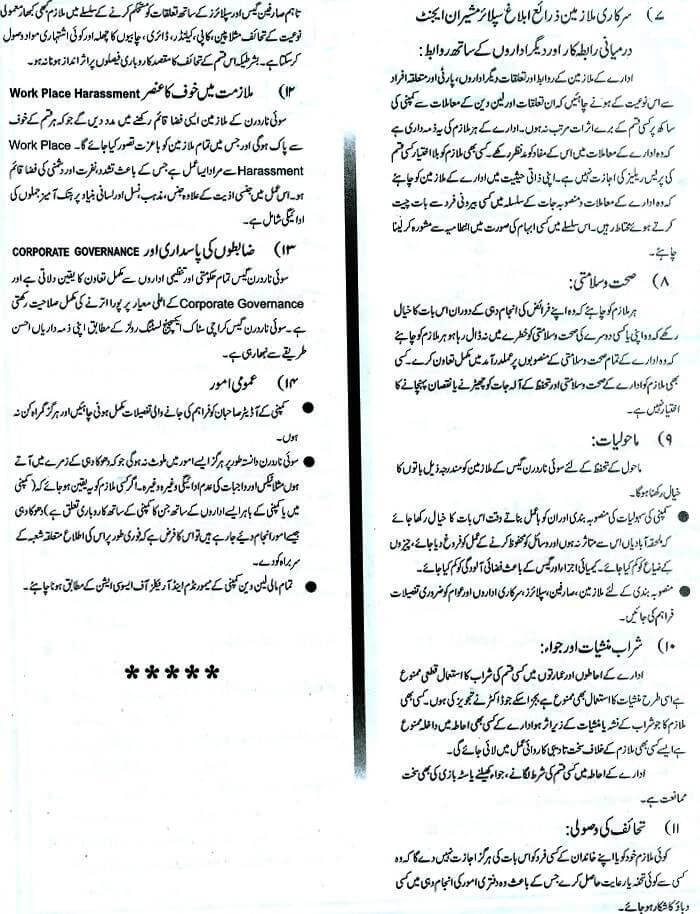 ۷) سرکاری ملازمین ذرائع ابلاغ سپلائرز مشیران ایجنٹ
درمیانی رابطہ کار اور دیگر اداروں کے ساتھ روابط:
ادارے کے ملازمین کے روابط اور تعلقات دیگر اداروں، پارٹی اور متعلقہ افراد
سے اس نوعیت کے ہونے چاہئیں کہ ان تعلقات اور لین دین کے معاملات سے کمپنی کی
ساکھ پر کسی قسم کے برے اثرات مرتب نہ ہوں۔ ادارے کے ہر ملازم کی یہ ذمہ داری ہے
کہ وہ ادارے کے معاملات میں اس کے مفاد کو مدنظر رکھے۔ کسی بھی ملازم کو بلا اختیار کسی قسم
کی پریس ریلیز کی اجازت نہیں ہے۔ اپنی ذاتی حیثیت میں ادارے کے ملازمین کو چاہئے
کہ وہ ادارے کے معاملات و منصوبہ جات کے سلسلہ میں کسی بیرونی فرد سے بات چیت
کرتے ہوئے محتاط رہیں۔ اس سلسلے میں کسی ابہام کی صورت میں انتظامیہ سے مشورہ کر لینا
چاہئے۔
۸) صحت و سلامتی:
ہر ملازم کو چاہئے کہ وہ اپنے فرائض کی انجام دہی کے دوران اس بات کا خیال
رکھے کہ وہ اپنی یا کسی دوسرے کی صحت و سلامتی کو خطرے میں نہ ڈال رہا ہو ہر ملازم کو چاہئے
کہ وہ ادارے کے تمام صحت و سلامتی کے منصوبوں پر عملدرآمد میں مکمل تعاون کرے۔ کسی
بھی ملازم کو ادارے کے صحت و سلامتی اور تحفظ کے آلہ جات کو چھیڑنے یا نقصان پہنچانے کا
اختیار نہیں ہے۔
۹) ماحولیات:
ماحول کے تحفظ کے لئے سوئی ناردرن گیس کے ملازمین کو مندرجہ ذیل باتوں کا
خیال رکھنا ہوگا۔
● کمپنی کی سہولیات کی منصوبہ بندی اور ان کو بامل بناتے وقت اس بات کا خیال رکھا جائے
کہ ملحقہ آبادیاں اس سے متاثر نہ ہوں اور وسائل کو محفوظ کرنے کے عمل کو فروغ دیا جائے، چیزوں
کے ضیاع کو کم کیا جائے۔ کیمیائی اجزاء اور گیس کے باعث فضائی آلودگی کو کم کیا جائے۔
● منصوبہ بندی کے لئے ملازمین، صارفین، سپلائرز، سرکاری اداروں اور عوام کو ضروری تفصیلات
فراہم کی جائیں۔
۱۰) شراب منشیات اور جواء:
ادارے کے احاطوں اور عمارتوں میں کسی قسم کی شراب کا استعمال قطعی ممنوع
ہے اسی طرح منشیات کا استعمال بھی ممنوع ہے بجز اسکے جو ڈاکٹر نے تجویز کی ہوں۔ کسی بھی
ملازم کا جو شراب کے نشہ یا منشیات کے زیر اثر ہو ادارے کے کسی بھی احاطہ میں داخلہ ممنوع
ہے ایسے کسی بھی ملازم کے خلاف سخت تادیبی کاروائی عمل میں لائی جائے گی۔
ادارے کے احاطہ میں کسی قسم کی شرط لگانے، جواء کھیلنے یا سٹہ بازی کی بھی سخت
ممانعت ہے۔
۱۱) تحائف کی وصولی:
کوئی ملازم خود کو یا اپنے خاندان کے کسی فرد کو اس بات کی ہرگز اجازت نہیں دے گا کہ وہ
کسی سے کوئی تحفہ یا رعایت حاصل کرے جس کے باعث وہ دفتری امور کی انجام دہی میں کسی
دباؤ کا شکار ہو جائے۔
تاہم صارفین گیس اور سپلائرز کے ساتھ تعلقات کو مستحکم کرنے کے سلسلے میں ملازم کبھی کبھار معمولی
نوعیت کے تحائف مثلا پین، کاپی، کیلنڈر، ڈائری، چابیوں کا چھلہ اور کوئی اشتہاری مواد وصول
کر سکتا ہے۔ بشرطیکہ اس قسم کے تحائف کا مقصد کاروباری فیصلوں پر اثر انداز ہونا نہ ہو۔
۱۲) ملازمت میں خوف کا عنصر Work Place Harassment
سوئی ناردرن کے ملازمین ایسی فضا قائم رکھنے میں مدد دیں گے جو کہ ہر قسم کے خوف
سے پاک ہوگی اور جس میں تمام ملازمین کو باعزت تصور کیا جائے گا۔ Work Place
Harassment سے مراد ایسا عمل ہے جس کے باعث تشدد، نفرت اور دشمنی کی فضا قائم
ہو۔ اس عمل میں جنسی اذیت کے علاوہ جنس، مذہب، نسل اور لسانی بنیاد پر ہتک آمیز جملوں کی
ادائیگی شامل ہے۔
۱۳) ضابطوں کی پاسداری اور CORPORATE GOVERNANCE
سوئی ناردرن گیس تمام حکومتی اور تنظیمی اداروں سے مکمل تعاون کا یقین دلاتی ہے اور
Corporate Governance کے اعلی معیار پر پورا اترنے کی مکمل صلاحیت رکھتی
ہے۔ سوئی ناردرن گیس کراچی سٹاک ایکسچینج لسٹنگ رولز کے مطابق اپنی ذمہ داریاں احسن
طریقے سے نبھا رہی ہے۔
۱۴) عمومی امور
● کمپنی کے آڈیٹر صاحبان کو فراہم کی جانے والی تفصیلات مکمل ہونی چاہئیں اور ہرگز گمراہ کن نہ
ہوں۔
● سوئی ناردرن دانستہ طور پر ہرگز ایسے امور میں ملوث نہ ہوگی جو کہ دھوکا دہی کے زمرے میں آتے
ہوں مثلا ٹیکس اور واجبات کی عدم ادائیگی وغیرہ وغیرہ۔ اگر کسی ملازم کو یہ یقین ہو جائے کہ (کمپنی
میں یا کمپنی کے باہر ایسے اداروں کے ساتھ جن کا کمپنی کے ساتھ کاروباری تعلق ہے) دھوکا دہی
جیسے امور انجام دیئے جا رہے ہیں تو اس کا فرض ہے کہ فوری طور پر اس کی اطلاع متعلقہ شعبہ کے
سربراہ کو دے۔
● تمام مالی لین دین کمپنی کے میمورنڈم اینڈ آرٹیکلز آف ایسوسی ایشن کے مطابق ہونا چاہئے۔
★★★★★